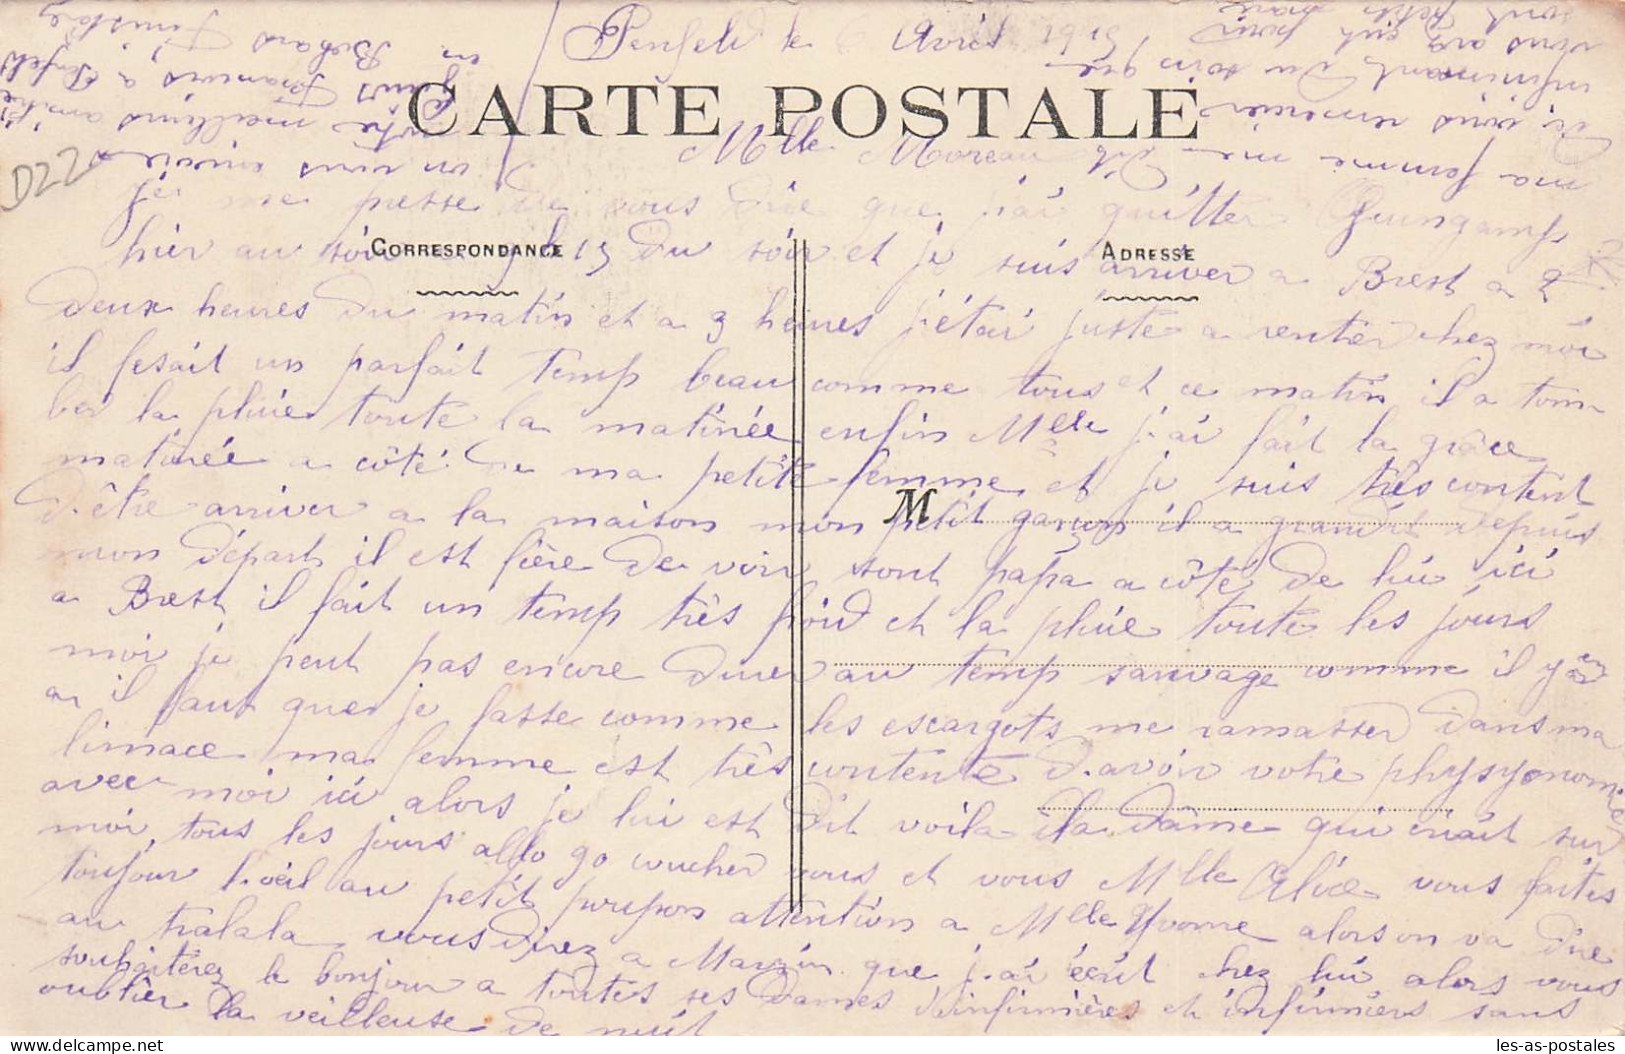 Penfeld le Avril 1916
CARTE POSTALE
Mlle Moreau
D22
je me presse de vous dire que j'ai quitter Guingamp
hier au soir 15 du soir et je suis arriver a Brest a 2
CORRESPONDANCE
ADRESSE
deux heures du matin et a 3 heures j'étai juste a rentrer chez moi
il fesait un parfait temp beau comme tous et ce matin il a tom
ber la pluie toute la matinée enfin Mlle j'ai fait la grâce
matinée a côté de ma petite femme et je suis très content
d'être arriver a la maison mon petit garçon il a grandit depuis
M
mon départ il est fière de voir sont papa a côté de lui ici
a Brest il fait un temp très froid et la pluie toute les jours
moi je peut pas encore durer au temp sauvage comme il y en
a il faut que je fasse comme les escargots me ramasser dans ma
limace ma femme est très contente d'avoir votre physyonomie
avec moi ici alors je lui est dit voila la dâme qui criait sur
moi tous les jours allo go coucher vous et vous Mlle Alice vous faites
toujour l'oeil au petit attention a Mlle Yvonne alors on va dire
au tralala vous direz a Marzin que j'ai écrit chez lui alors vous
souhaiterez le bonjour a toutes ses Dames d'infirmières et infirmiers sans
oublier la veilleuse de nuit
ma femme me dit
de vous remercier
infiniment du soin que
vous avez eut pour
sont petit marie
on vous envoie
votre meilleurs amitié
Francois a Penfeld
en Bohars Finistère
les-as-postales
delcampe.net
les-as-postales.com